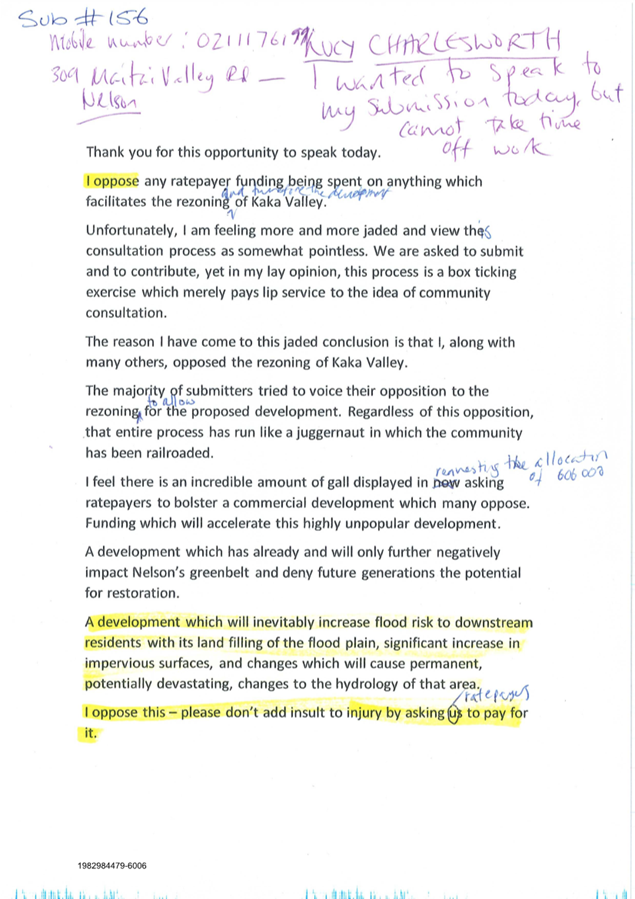 Sub # 156
Mobile number: 02111761 LUCY CHARLESWORTH
309 Maitai Valley Rd — I wanted to speak to
Nelson my submission today, but
cannot take time
off work
Thank you for this opportunity to speak today.
I oppose any ratepayer funding being spent on anything which
and therefore the development
facilitates the rezoning of Kaka Valley.
Unfortunately, I am feeling more and more jaded and view this
consultation process as somewhat pointless. We are asked to submit
and to contribute, yet in my lay opinion, this process is a box ticking
exercise which merely pays lip service to the idea of community
consultation.
The reason I have come to this jaded conclusion is that I, along with
many others, opposed the rezoning of Kaka Valley.
The majority of submitters tried to voice their opposition to the
to allow
rezoning for the proposed development. Regardless of this opposition,
that entire process has run like a juggernaut in which the community
has been railroaded.
requesting the allocation
of 606 000
I feel there is an incredible amount of gall displayed in now asking
ratepayers to bolster a commercial development which many oppose.
Funding which will accelerate this highly unpopular development.
A development which has already and will only further negatively
impact Nelson's greenbelt and deny future generations the potential
for restoration.
A development which will inevitably increase flood risk to downstream
residents with its land filling of the flood plain, significant increase in
impervious surfaces, and changes which will cause permanent,
potentially devastating, changes to the hydrology of that area.
ratepayers
I oppose this – please don't add insult to injury by asking us to pay for
it.
1982984479-6006